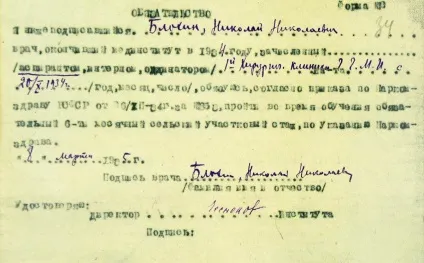 Форма №3
ОБЯЗАТЕЛЬСТВО
Я нижеподписавшийся. Блохин, Николай Николаевич
врач, окончивший мединститут в 1934 году, зачисленный
/аспирантом, интерном, ординатором/ 1ой Хирургич. клиники Г.Г.М.И. с
20/X. 1934г. /год, месяц, число/, обязуюсь, согласно приказа по Нарком-
здраву РСФСР от за № пройти во время обучения обяза-
тельный 6-ти месячный сельский участковый стаж, по указанию Нарком-
здрава.
" 8 " марта 1935 г.
Подпись врача Блохин, Николай Николаевич
/фамилия имя и отчество/
Удостоверяю:
директор Института
Подпись: